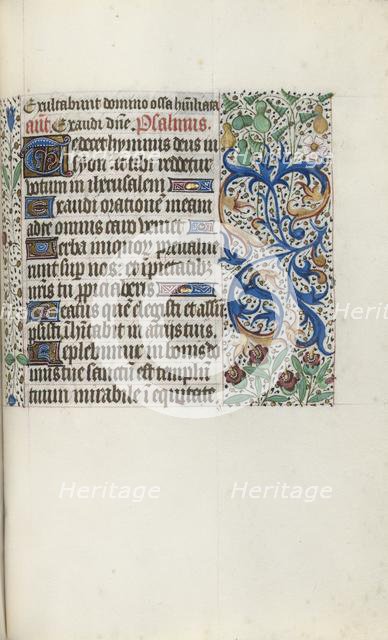 Exultabunt domino ossa humiliata
añt Exaudi dñe. Psalmus.
Te decet hymnus deus in
syon et tibi reddetur
votum in ihrusalem
Exaudi orationē meam
ad te omnis caro veniet
Verba iniquor prevalue
runt sup nos et impietatibz
nris tu ppiciaberis
Beatus quē elegisti et assū
psisti īhitabit in atriis tuis
Replebimur in bonis do
mus tue sanctū est templū
tuum mirabile ī equitate
Heritage
Heritage
Heritage
Heritage